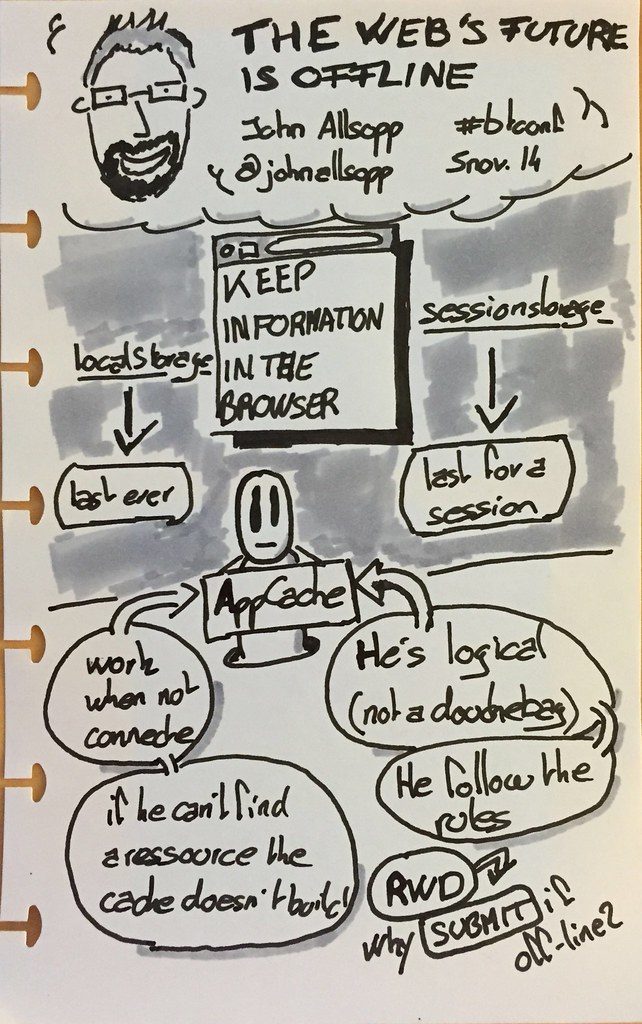 THE WEB'S FUTURE
IS OFFLINE
John Allsopp
@johnallsopp
#btconf
5nov. 14
KEEP
INFORMATION
IN THE
BROWSER
localStorage
last ever
sessionstorage
last for a
session
AppCache
work
when not
connecte
if he can't find
a ressource the
cache doesn't build
He's logical
(not a douchebag)
He follow the
rules
RWD
why SUBMIT if
off-line?